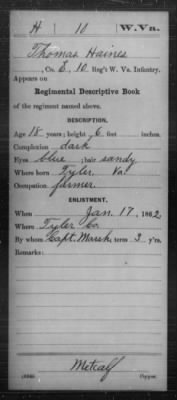 H 10 W.Va.
Thomas Haines
, Co. E, 10 Reg't W. Va. Infantry.
Appears on
Regimental Descriptive Book
of the regiment named above.
DESCRIPTION.
Age 18 years; height 6 feet inches.
Complexion dark
Eyes blue; hair sandy
Where born Tyler, Va.
Occupation farmer
ENLISTMENT.
When Jan. 17, 1862
Where Tyler Co.
By whom Capt. Marsh; term 3 y'rs.
Remarks:
Metcalf
Copyist.